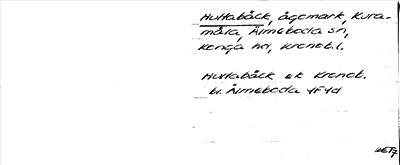 Huvtabäck, ägomark, Kura-
måla, Älmeboda sn,
Konga hd, Kronob.l.
Huvtabäck ek Kronob.
bl. Älmeboda